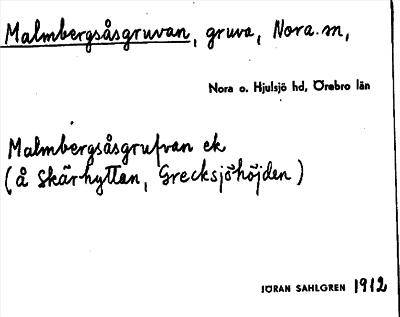 Malmbergsåsgruvan, gruva, Nora sn,
Nora o. Hjulsjö hd, Örebro län
Malmbergsåsgrufvan ek
(å Skärhyttan, Grecksjöhöjden)
JÖRAN SAHLGREN 1912